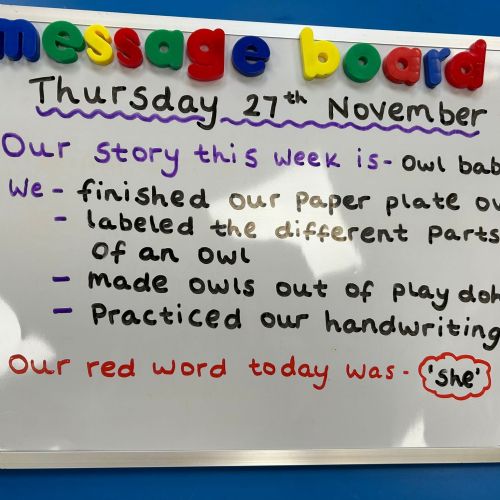 message board
Thursday 27th November
Our story this week is - Owl bab
We - finished our paper plate ow
- labeled the different parts
of an owl
- made owls out of play doh
- Practiced our handwriting
Our red word today was - 'she'